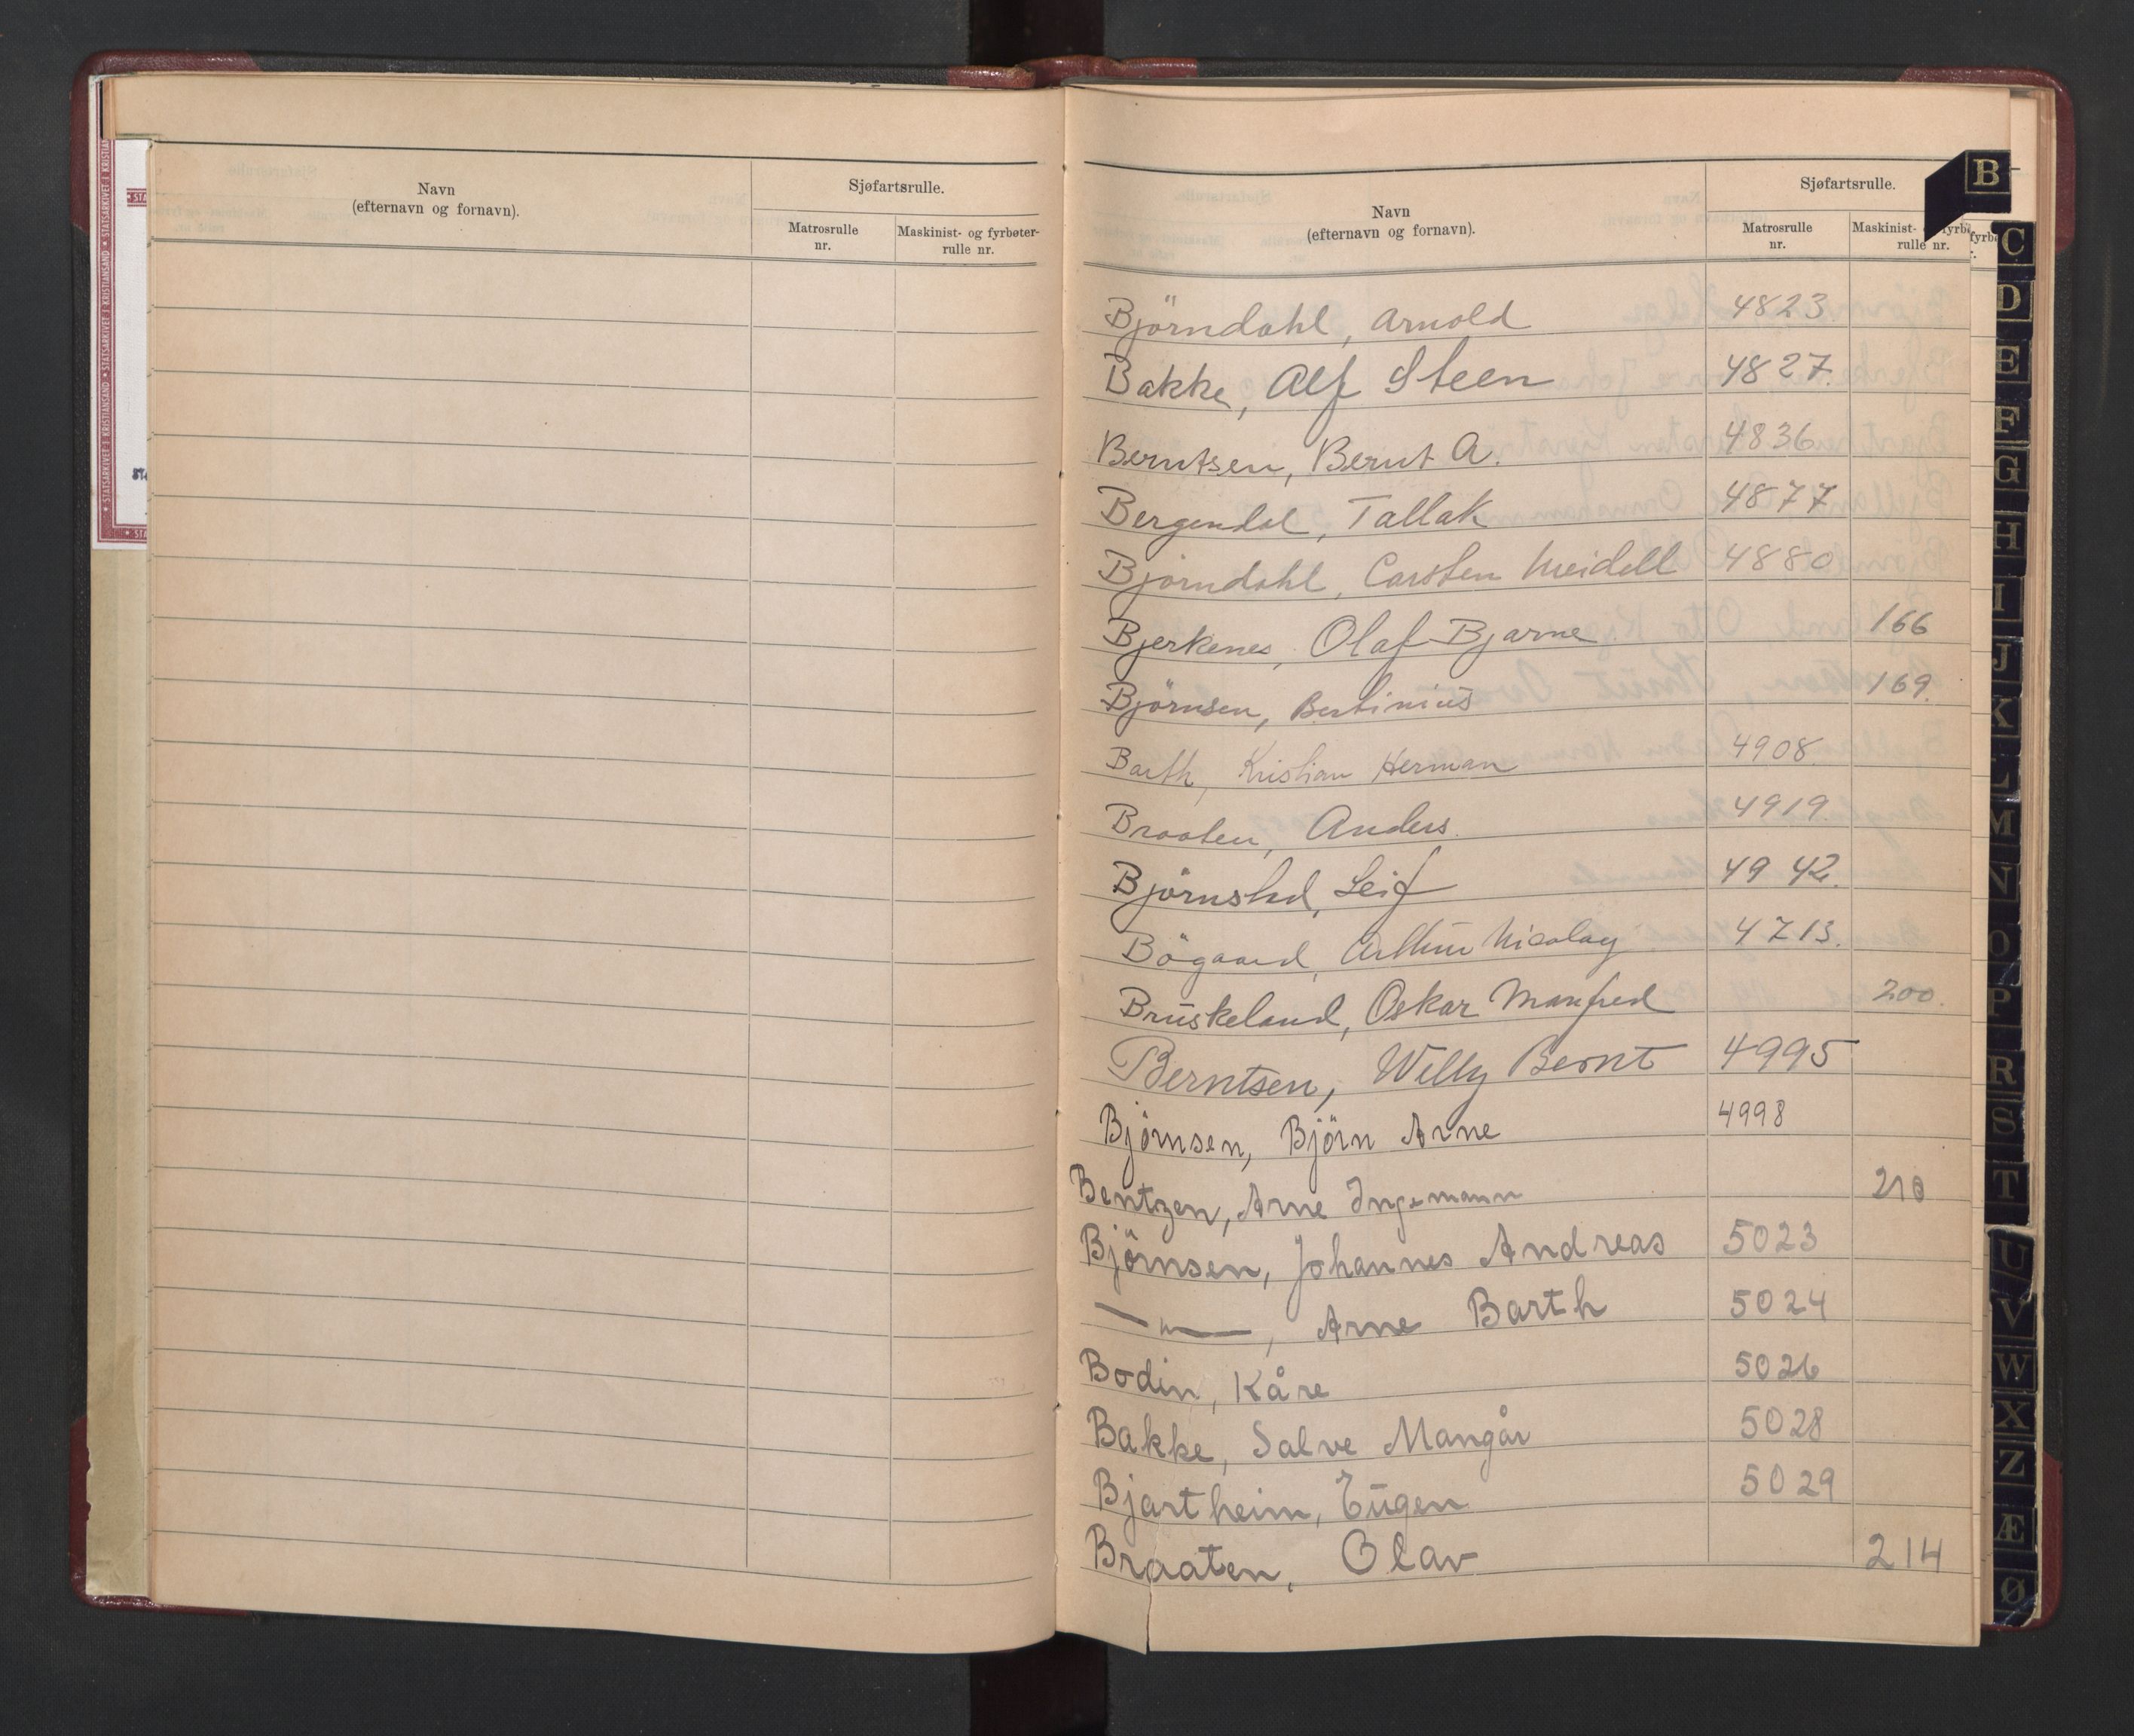 Navn
(efternavn og fornavn).
Sjøfartsrulle.
Matrosrulle
nr.
Maskinist- og fyrbøter-
rulle nr.
Navn
(efternavn og fornavn).
Sjøfartsrulle.
Matrosrulle
nr.
Maskinist- fyrbø
rulle nr.
Björndahl, Arnold 4823
Bakke, Alf Steen 4827.
Berntsen, Bernt A. 4836
Bergendal, Tallak 4877
Björndahl, Carsten Meidell 4880
Bjerkenes, Olaf Bjarne 166
Björnsen, Bertinius 169.
Barth, Kristian Herman 4908.
Braaten, Anders. 4919.
Björnsted, Leif 4942.
Bögaard, Arthur Nicolay 4713.
Bruskeland, Oskar Manfred 200.
Berntsen, Willy Bernt 4995
Björnsen, Björn Arne 4998
Bentzen, Arne Ingemann
Björnsen, Johannes Andreas 5023
—"—, Arne Barth 5024
Bodin, Kåre 5026
Bakke, Salve Mangår 5028
Bjartheim, Eugen 5029
Braaten, Olav 214
B
C
D
E
F
G
H
I
J
K
L
M
N
O
P
R
S
T
U
V
W
X
Z
Æ
Ø
STATSARKIVET I KRISTIANSAND • STATSARKIVET I KRISTIANSAND